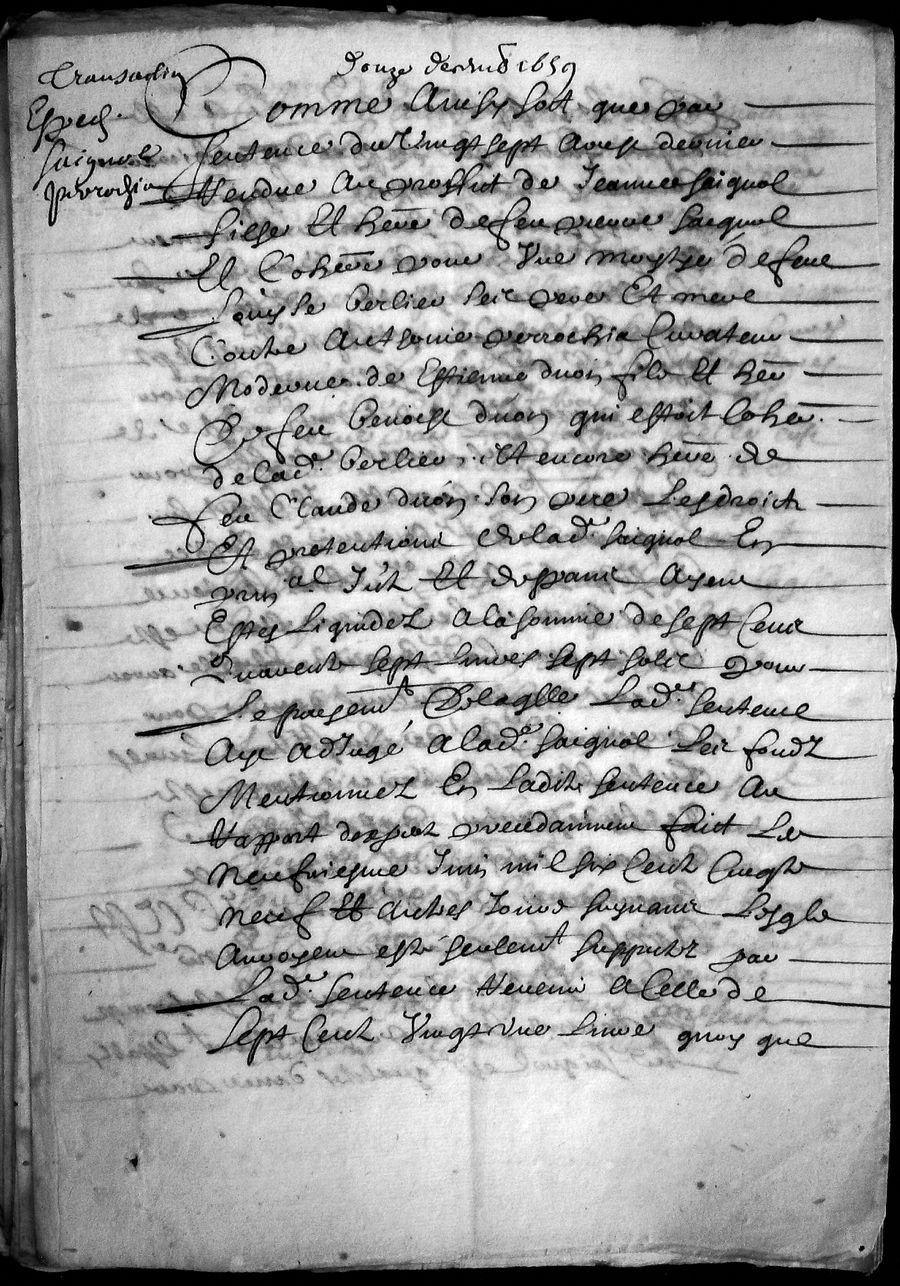 douze decemb 1659
Transaction
Especs.
Saignol &
perrochia
Comme Ainsy soit que par
Sentence du Vingt sept Aoust dernier
Rendue Au proffict de Jeanne Saignol
fille Et here de feu pierre Saignol
Et Cohere pour Une moytye de feue
Louyse berlier Ses pere Et mere
Contre Anthoine perrochia Curateur
Moderne de Estienne duon filz Et here
De feu benoist duon qui estoit Cohere
de lad. berlier, Et encore here de
feu Claude duon son pere Les droictz
Et pretentions de lad. Saignol En
prinal Intz Et despans Ayent
Estes Liquidez A la somme de sept Cens
Quarente sept Livres sept solz pour
Le payemt De laqlle Lad. Sentence
Aye adJugé A lad. Saignol Les fondz
Mentionnez En Ladite Sentence Au
Rapport dexpertz precedamment faict Le
Neufviesme Juin mil six Cent Cinqte
Neuf Et Autres Jours Suyvans Lesqlz
Auroyent esté seulemt supputez par
Lad. Sentence Revenir A Celle de
Sept Cent Vingt Une Livre quoy que